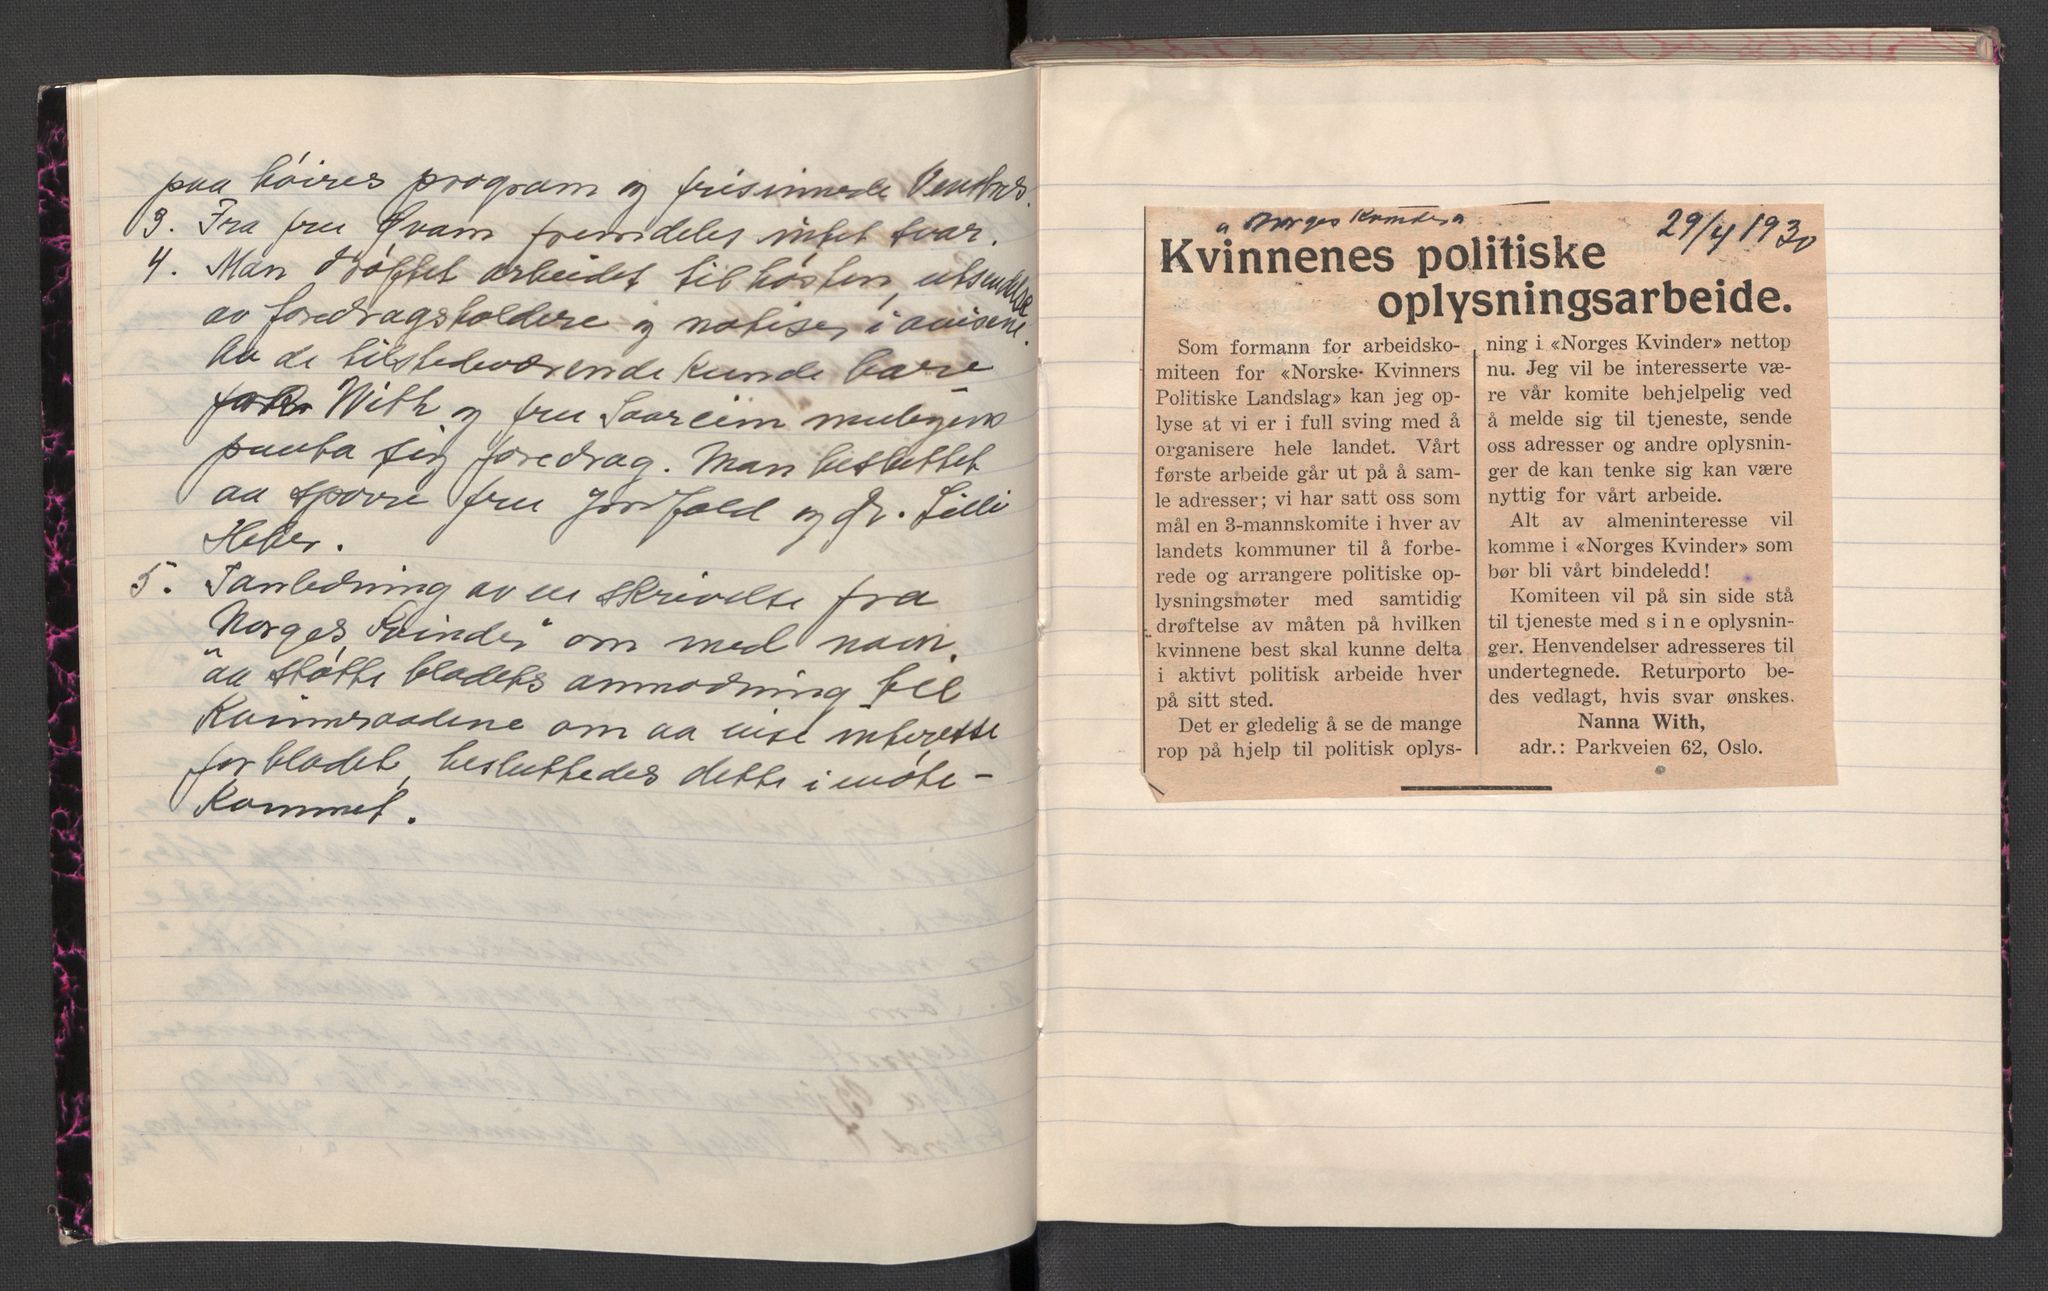 paa høires program og frisinnede Venstres.
3. Fra fru Qvam fremdeles intet svar.
4. Man drøftet arbeidet til høsten, utsendelse
av foredragsholdere og notiser i avisene.
Av de tilstedeværende kunde bare
With og fru Saareim muligens
paata sig foredrag. Man besluttet
aa spørre fru og dr. Lilli
Heber.
5. I anledning av en skrivelse fra
"Norges Kvinder" om med navn
aa støtte bladets anmodning til
Kvinneraadene om aa vise interesse
for bladet, besluttedes dette i møte-
kommet.
"Norges Kvinder" 29/4 1930
Kvinnenes politiske
oplysningsarbeide.
Som formann for arbeidsko-
miteen for «Norske Kvinners
Politiske Landslag» kan jeg op-
lyse at vi er i full sving med å
organisere hele landet. Vårt
første arbeide går ut på å sam-
le adresser; vi har satt oss som
mål en 3-mannskomite i hver av
landets kommuner til å forbe-
rede og arrangere politiske op-
lysningsmøter med samtidig
drøftelse av måten på hvilken
kvinnene best skal kunne delta
i aktivt politisk arbeide hver
på sitt sted.
Det er gledelig å se de mange
rop på hjelp til politisk oplys-
ning i «Norges Kvinder» nettop
nu. Jeg vil be interesserte væ-
re vår komite behjelpelig ved
å melde sig til tjeneste, sende
oss adresser og andre oplysnin-
ger de kan tenke sig kan være
nyttig for vårt arbeide.
Alt av almeninteresse vil
komme i «Norges Kvinder» som
bør bli vårt bindeledd!
Komiteen vil på sin side stå
til tjeneste med sine oplysnin-
ger. Henvendelser adresseres til
undertegnede. Returporto be-
des vedlagt, hvis svar ønskes.
Nanna With,
adr.: Parkveien 62, Oslo.